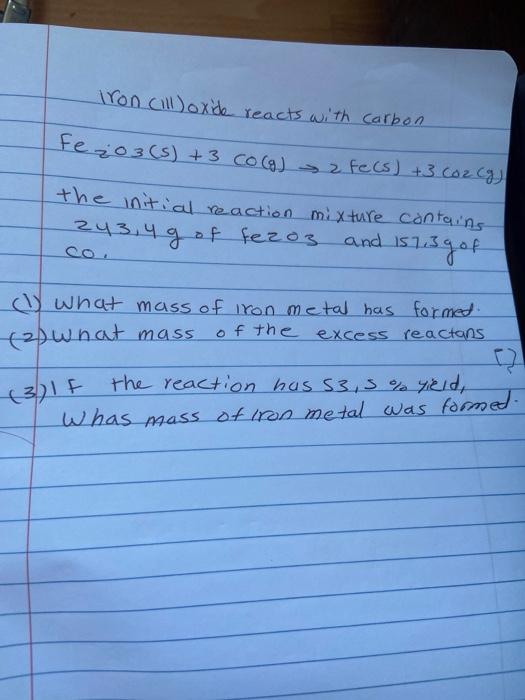 iron (III) oxide reacts with carbon
Fe2O3(s) + 3 CO(g) → 2 Fe(s) + 3 CO2(g)
the initial reaction mixture contains
243,4 g of Fe2O3 and 157,3 g of
CO.
(1) What mass of iron metal has formed.
(2) What mass of the excess reactans
[?]
(3) IF the reaction has 53,5 % yield,
Whas mass of iron metal was formed.